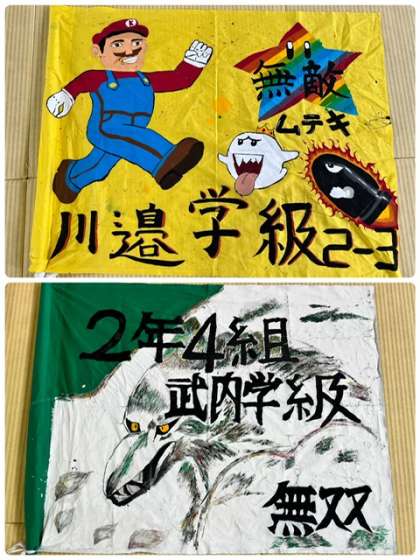 無敵
ムテキ
川邉学級2-3
2年4組
武内学級
無双